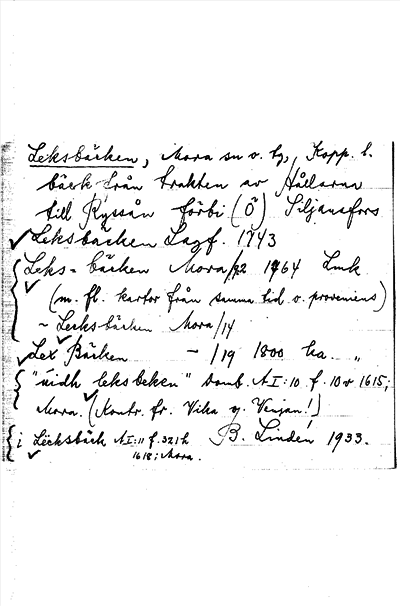 Leksbäcken, Mora sn o. tg, Kopp. l.
bäck från trakten av Hållarna
till Ryssån förbi (Ö) Siljansfors
Leksbäcken Lagf. 1743
Leks-bäcken Mora/32 1764 Lmk
(m. fl. kartor från samma tid o. proveniens)
~ Lecksbäcken Mora/14
Lex Bäcken - /19 1800 ka. "
"uidh leksbeken" domb. A I:10 f. 10 v 1615;
Mora. (Kontr. fr. Vika g. Venjan!)
i Lecksbäck A I:11 f. 321 h B. Lindén 1933.
1618; Mora.